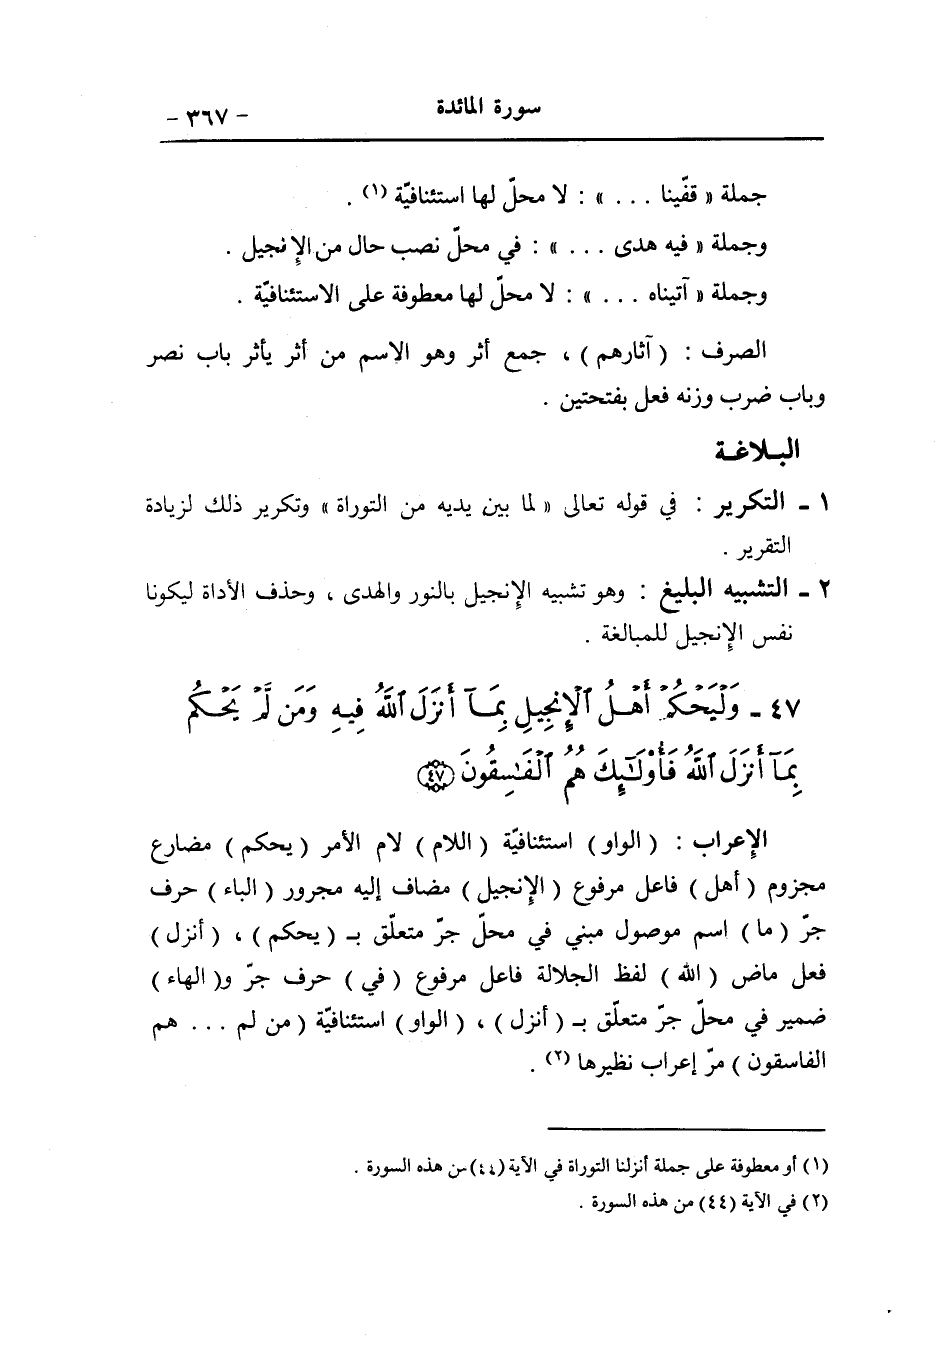 سورة المائدة - ٣٦٧ -
جملة « قفّينا . . . » : لا محلّ لها استئنافيّة (١) .
وجملة « فيه هدى . . . » : في محلّ نصب حال من الإنجيل .
وجملة « آتيناه . . . » : لا محلّ لها معطوفة على الاستئنافيّة .
الصرف : ( آثارهم ) ، جمع أثر وهو الاسم من أثر يأثر باب نصر
وباب ضرب وزنه فعل بفتحتين .
البلاغة
١ ـ التكرير : في قوله تعالى « لما بين يديه من التوراة » وتكرير ذلك لزيادة
التقرير .
٢ ـ التشبيه البليغ : وهو تشبيه الإنجيل بالنور والهدى ، وحذف الأداة ليكونا
نفس الإنجيل للمبالغة .
٤٧ ـ وَلْيَحْكُمْ أَهْلُ ٱلْإِنجِيلِ بِمَآ أَنزَلَ ٱللَّهُ فِيهِ وَمَن لَّمْ يَحْكُم
بِمَآ أَنزَلَ ٱللَّهُ فَأُوْلَٰٓئِكَ هُمُ ٱلْفَٰسِقُونَ ٤٧
الإعراب : ( الواو ) استئنافيّة ( اللام ) لام الأمر ( يحكم ) مضارع
مجزوم ( أهل ) فاعل مرفوع ( الإنجيل ) مضاف إليه مجرور ( الباء ) حرف
جرّ ( ما ) اسم موصول مبني في محلّ جرّ متعلّق بـ ( يحكم ) ، ( أنزل )
فعل ماض ( الله ) لفظ الجلالة فاعل مرفوع ( في ) حرف جرّ و( الهاء )
ضمير في محلّ جرّ متعلّق بـ ( أنزل ) ، ( الواو ) استئنافيّة ( من لم . . . هم
الفاسقون ) مرّ إعراب نظيرها (٢) .
(١) أو معطوفة على جملة أنزلنا التوراة في الآية (٤٤) من هذه السورة .
(٢) في الآية (٤٤) من هذه السورة .